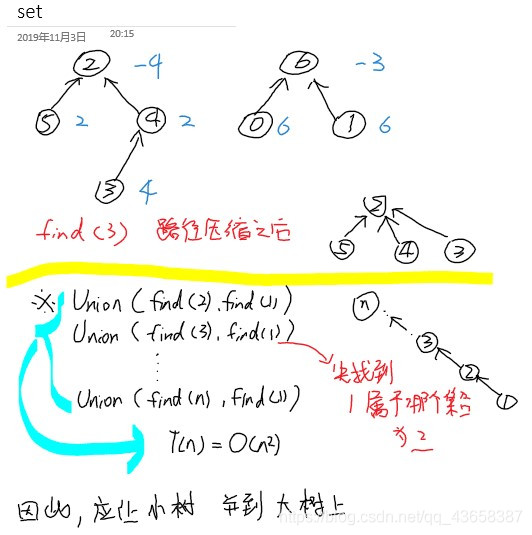 set
2019年11月3日 20:15
2 -4
6 -3
5 2 4 2
0 6 1 6
3 4
find(3) 路径压缩之后
2
5 4 3
※ Union(find(2),find(1))
Union(find(3),find(1))
⋮
Union(find(n),find(1))
T(n)=O(n²)
n
3
2
1
先找到
1属于哪个集合
为2
因此,应让小树 并到大树上
https://blog.csdn.net/qq_43658387